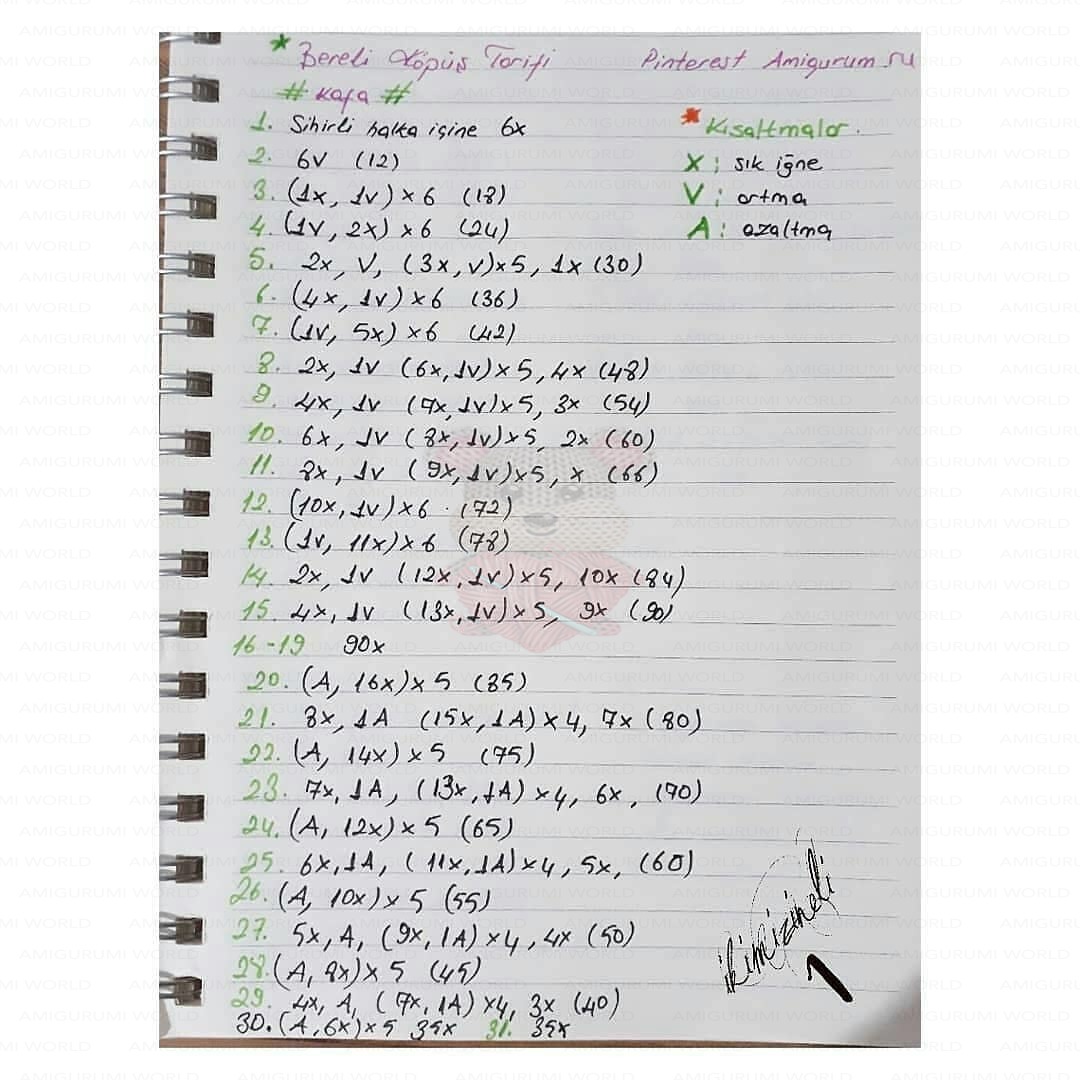 * Bereli Köpüş Tarifi Pinterest Amigurum ru
# Kafa #
* Kısaltmalar.
1. Sihirli halka içine 6x
X : sık iğne
2. 6V (12)
V : artma
3. (1x, 1v) x 6 (18)
A : azaltma
4. (1v, 2x) x 6 (24)
5. 2x, V, (3x, v) x 5, 1x (30)
6. (4x, 1v) x 6 (36)
7. (1v, 5x) x 6 (42)
8. 2x, 1v (6x, 1v) x 5, 4x (48)
9. 4x, 1v (7x, 1v) x 5, 3x (54)
10. 6x, 1v (8x, 1v) x 5, 2x (60)
11. 8x, 1v (9x, 1v) x 5, x (66)
12. (10x, 1v) x 6 (72)
13. (1v, 11x) x 6 (78)
14. 2x, 1v (12x, 1v) x 5, 10x (84)
15. 4x, 1v (13x, 1v) x 5, 9x (90)
16-19 90x
20. (A, 16x) x 5 (85)
21. 8x, 1A (15x, 1A) x 4, 7x (80)
22. (A, 14x) x 5 (75)
23. 7x, 1A, (13x, 1A) x 4, 6x, (70)
24. (A, 12x) x 5 (65)
25. 6x, 1A, (11x, 1A) x 4, 5x, (60)
26. (A, 10x) x 5 (55)
27. 5x, A, (9x, 1A) x 4, 4x (50)
28. (A, 8x) x 5 (45)
29. 4x, A, (7x, 1A) x 4, 3x (40)
30. (A, 6x) x 5 35x 31. 35x
1
AMIGURUMI WORLD